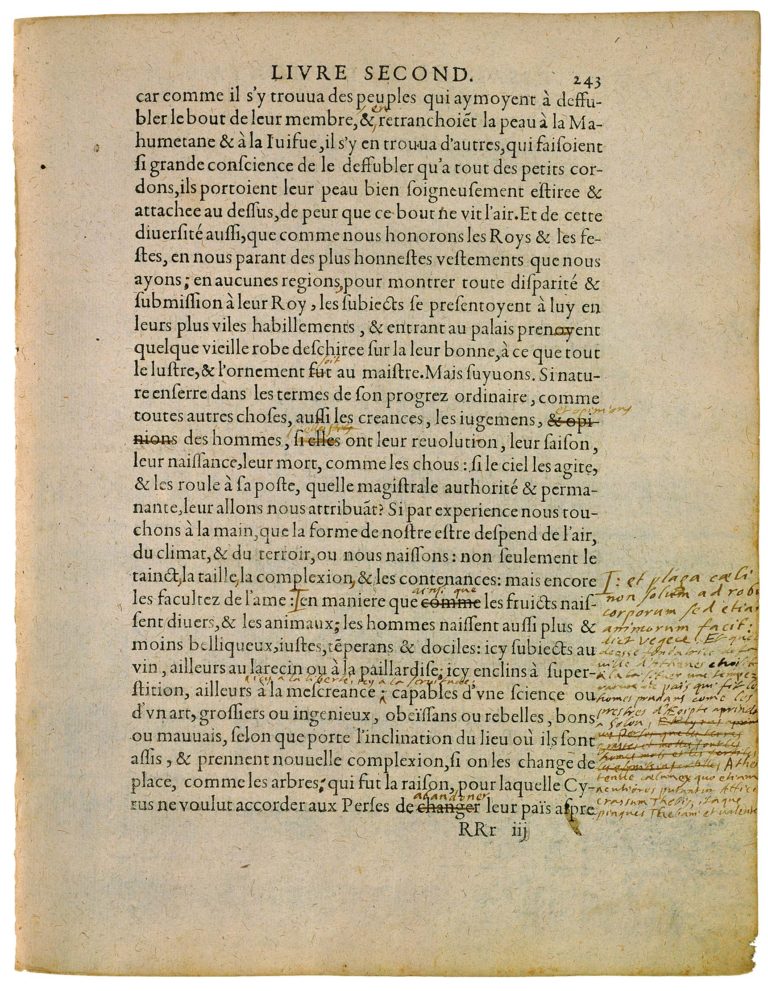 LIVRE SECOND.
243
car comme il s'y trouua des peuples qui aymoyent à deſſu-
bler le bout de leur membre, & retranchoiẽt la peau à la Ma-
humetane & à la Iuifue, il s'y en trouua d'autres, qui faiſoient
ſi grande conſcience de le deſſubler qu'a tout des petits cor-
dons, ils portoient leur peau bien ſoigneuſement eſtiree &
attachee au deſſus, de peur que ce bout ne vit l'air. Et de cette
diuerſité auſſi, que comme nous honorons les Roys & les fe-
ſtes, en nous parant des plus honneſtes veſtements que nous
ayons; en aucunes regions, pour montrer toute diſparité &
ſubmiſſion à leur Roy, les ſubiects ſe preſentoyent à luy en
leurs plus viles habillements, & entrant au palais prenoyent
quelque vieille robe deſchiree ſur la leur bonne, à ce que tout
soit
le luſtre, & l'ornement fut au maiſtre. Mais ſuyuons. Si natu-
re enſerre dans les termes de ſon progrez ordinaire, comme
et opinions
toutes autres choſes, auſſi les creances, les iugemens, & opi-
nions des hommes, ſi elles ont leur reuolution, leur ſaiſon,
leur naiſſance, leur mort, comme les chous: ſi le ciel les agite,
& les roule à ſa poſte, quelle magiſtrale authorité & perma-
nante, leur allons nous attribuãt? Si par experience nous tou-
chons à la main, que la forme de noſtre eſtre deſpend de l'air,
du climat, & du terroir, ou nous naiſſons: non ſeulement le
tainct, la taille, la complexion, & les contenances: mais encore
ainsi que
les facultez de l'ame: en maniere que comme les fruicts naiſ-
ſent diuers, & les animaux; les hommes naiſſent auſſi plus &
moins belliqueux, iuſtes, tẽperans & dociles: icy ſubiects au
vin, ailleurs au larecin ou à la paillardiſe; icy enclins à ſuper-
icy a la liberte, icy a la servitude,
ſtition, ailleurs à la meſcreance; capables d'vne science ou
d'vn art, groſſiers ou ingenieux, obeïſſans ou rebelles, bons
ou mauuais, ſelon que porte l'inclination du lieu où ils ſont
aſſis, & prennent nouuelle complexion, ſi on les change de
place, comme les arbres; qui fut la raiſon, pour laquelle Cy-
abandoner
rus ne voulut accorder aux Perſes de changer leur païs aſpre
RRr iij
et plaga cæli
non solum ad robur
corporum sed etiam
animorum facit:
dict vegece. Et que